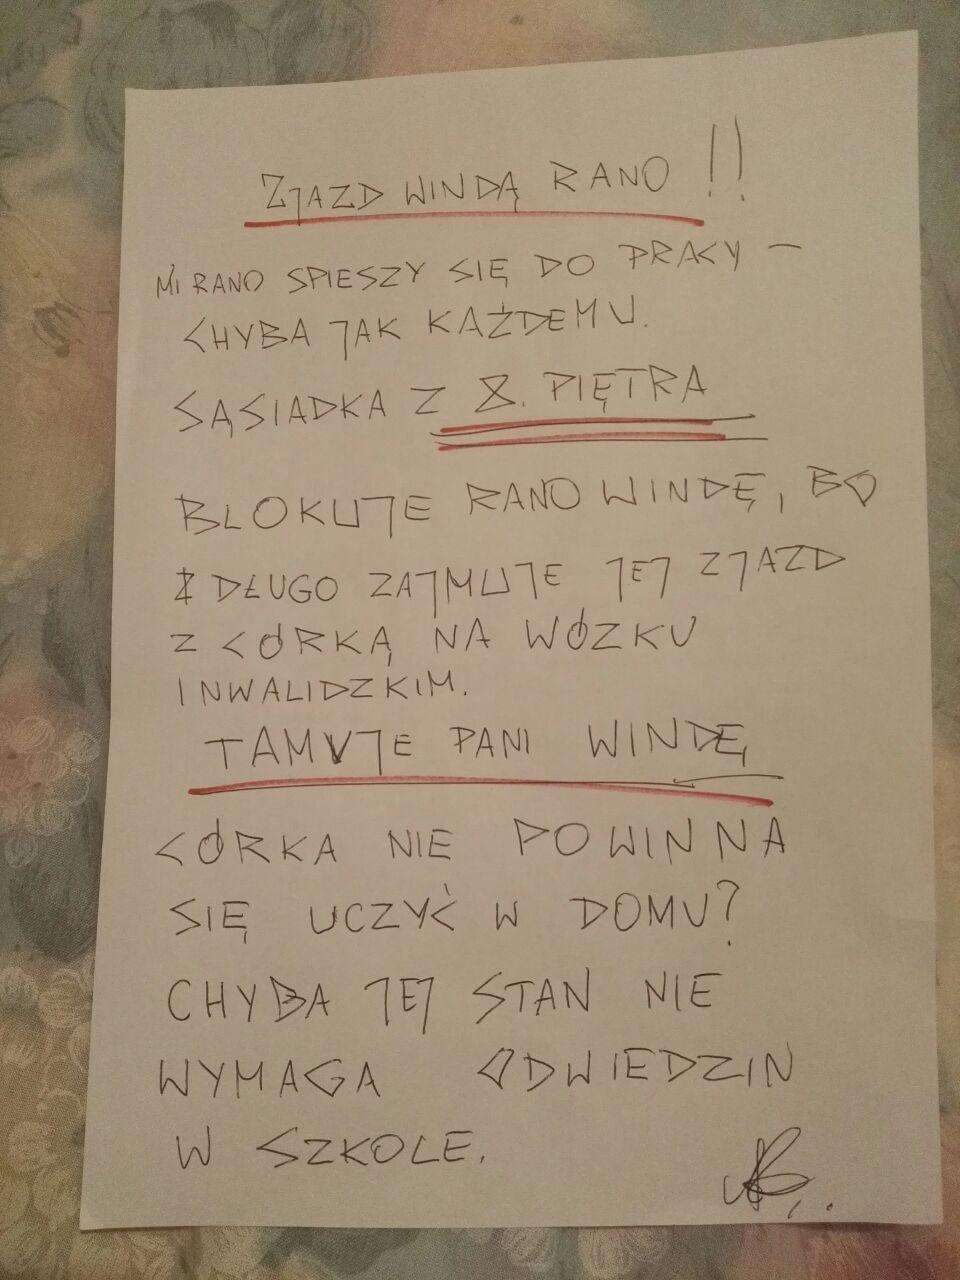 ZJAZD WINDĄ RANO !!
MI RANO SPIESZY SIĘ DO PRACY –
CHYBA JAK KAŻDEMU.
SĄSIADKA Z 8. PIĘTRA
BLOKUJE RANO WINDĘ, BO
DŁUGO ZAJMUJE JEJ ZJAZD
Z CÓRKĄ NA WÓZKU
INWALIDZKIM.
TAMUJE PANI WINDĘ
CÓRKA NIE POWINNA
SIĘ UCZYĆ W DOMU?
CHYBA JEJ STAN NIE
WYMAGA ODWIEDZIN
W SZKOLE.